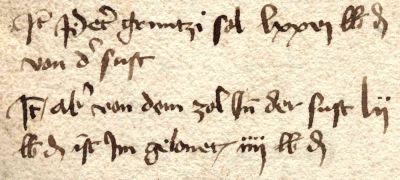 It peter gruntzi sol lxxvij lb d
von dr sust
It abr von dem zol In der sust lij
lb d ist Im gelonet iiij lb d